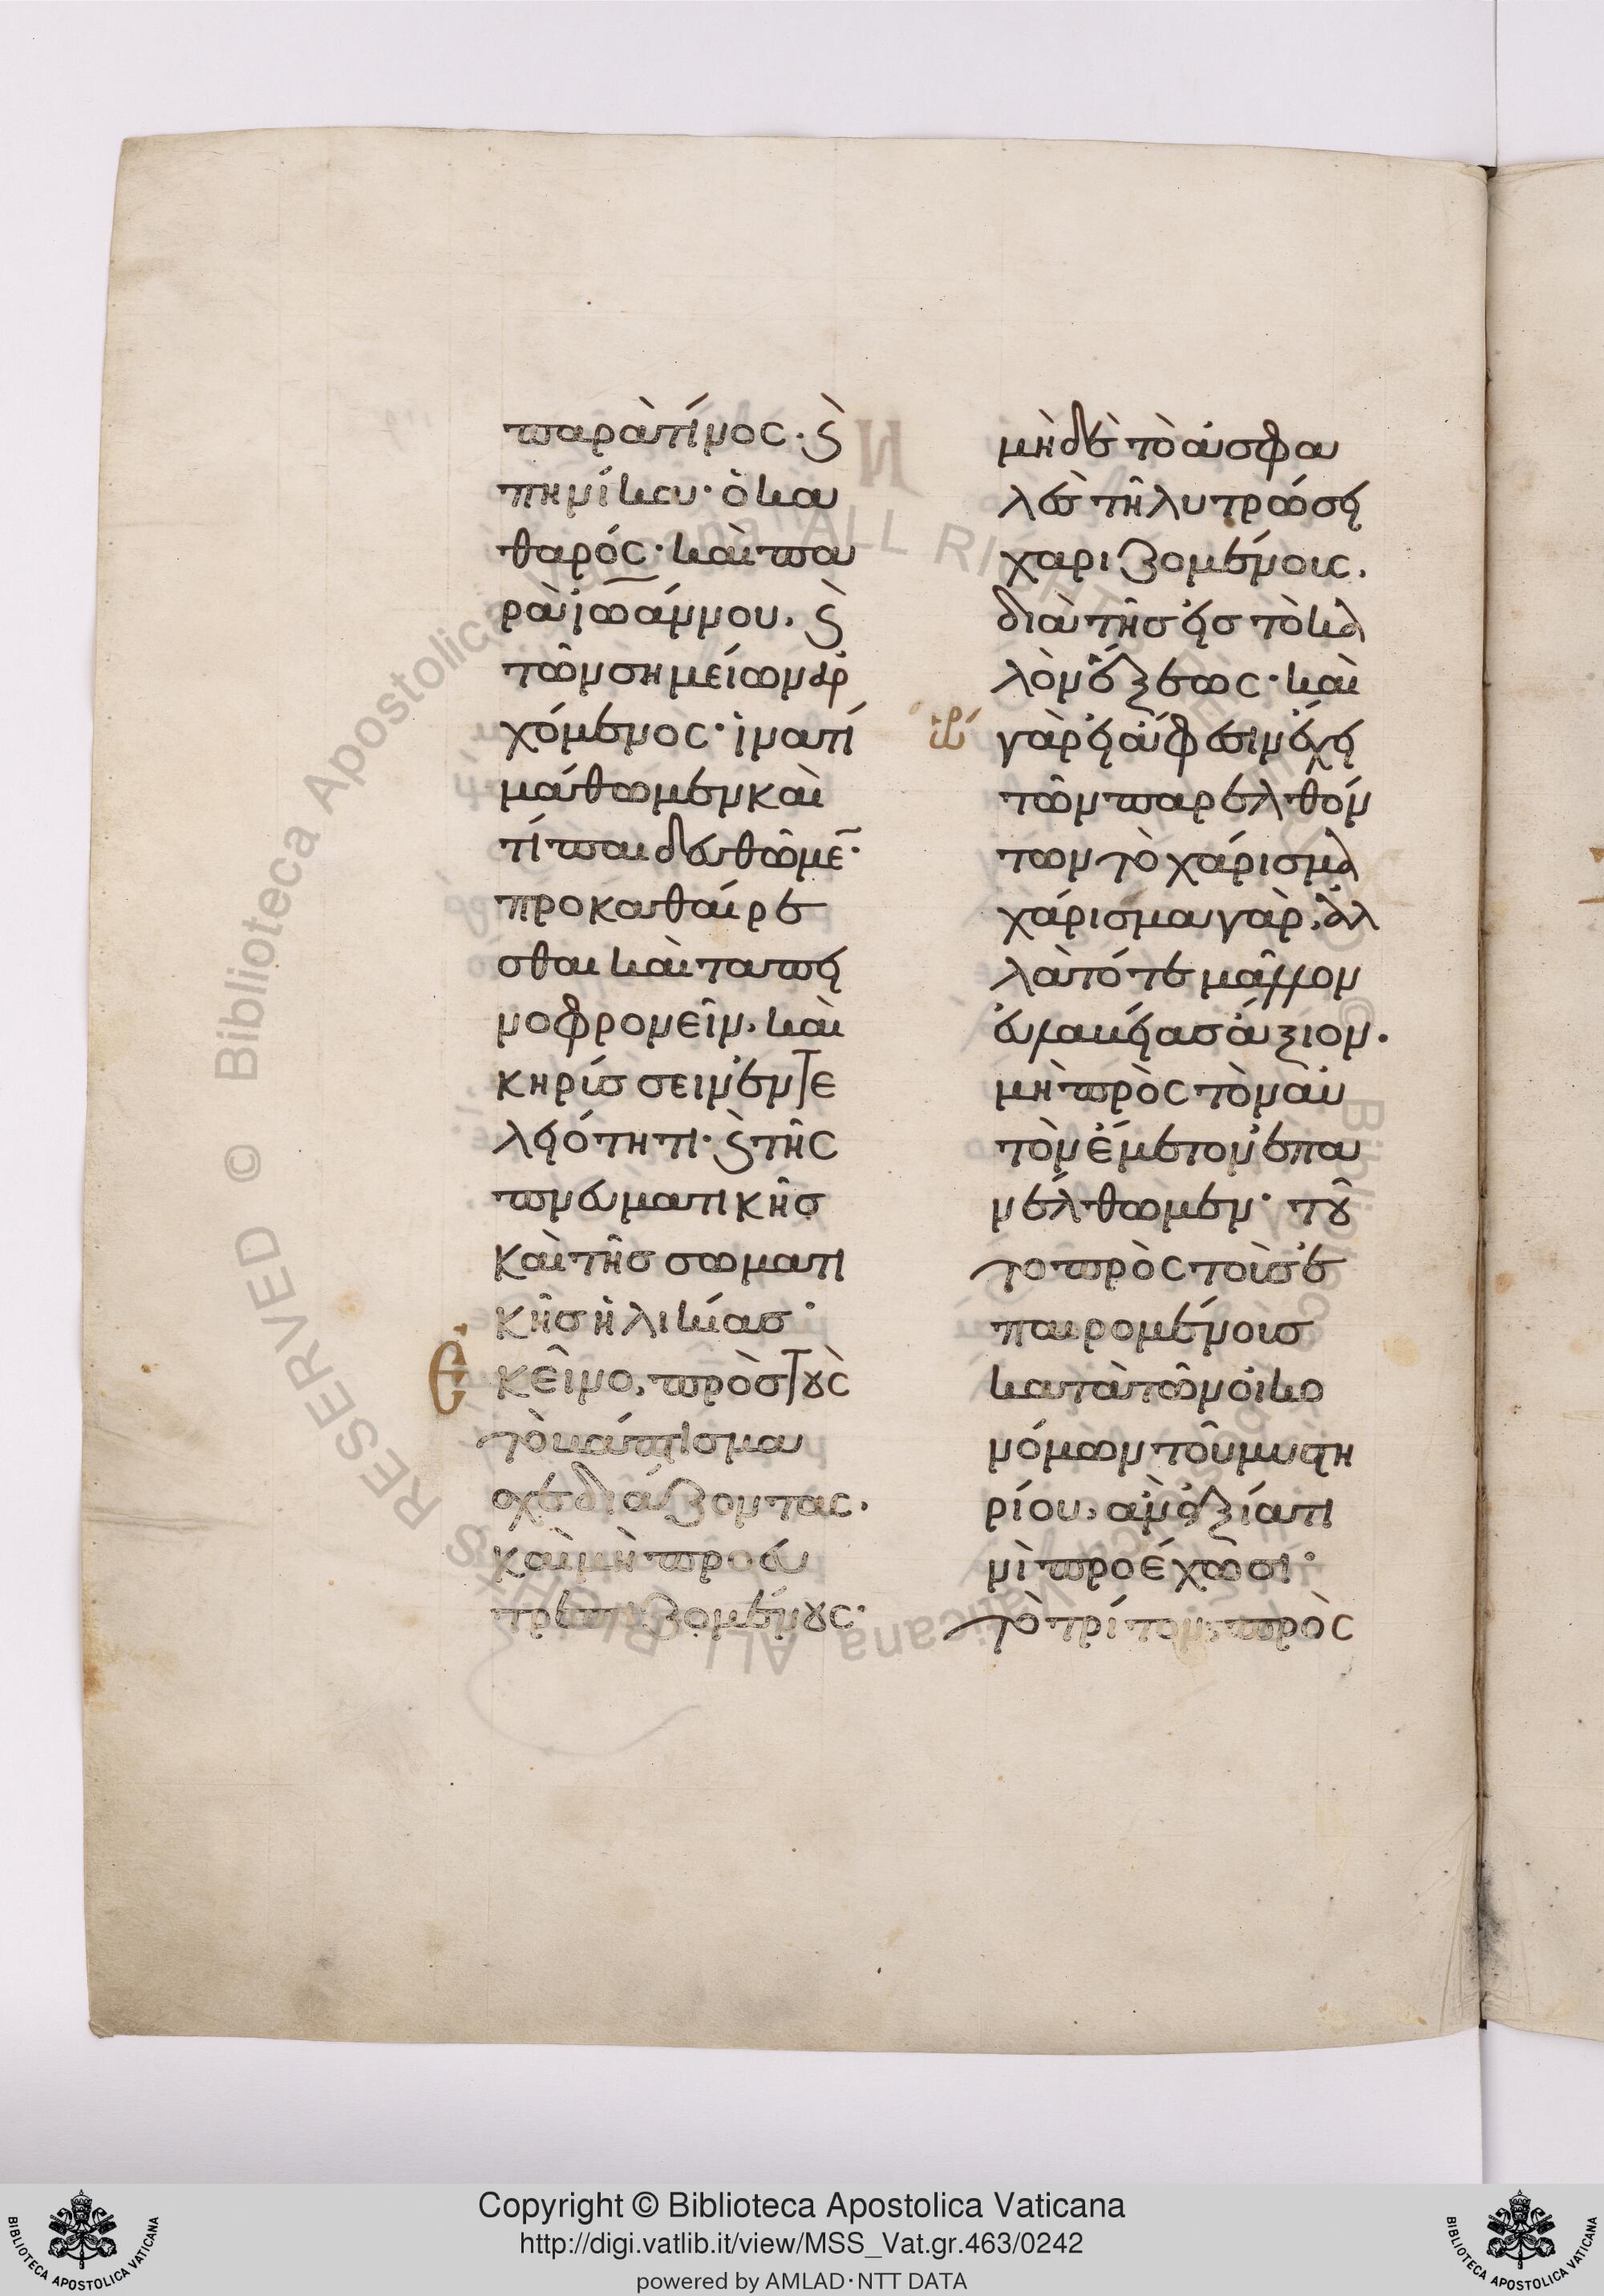 παρὰ τίνος· ϛ̀
πηνίκα· ὁ κα
θαρός· καὶ πα
ρὰ ἰωάννου. ϛ̀
τῶν σημείων ἀρ
χόμενος· ἵνα τί
μάθωμεν καὶ
τί παιδευθῶμε̄·
προκαθαίρε
σθαι καὶ ταπει
νοφρονεῖν, καὶ
κηρύσσειν ἐν τε
λειότητι· ϛ̀ τῆς
πνευματικῆς
καὶ τῆς σωματι
κῆς ἡλικίας·
Ἐκεῖνο, πρὸς τοὺς
τὸ βάπτισμα
σχεδιάζοντας.
καὶ μὴ προευ
τρεπιζομένους·
μηδὲ τὸ ἀσφα
λὲς τῆ λυτρώσει
χαριζομένοις.
διὰ τῆς εἰς τὸ κα
λὸν ἕξεως· καὶ
γὰρ εἰ ἄφεσιν ἔχει
τῶν παρελθόν
των τὸ χάρισμα
χάρισμα γάρ, ἀλ
λὰ τότε μᾶλλον
εὐλαβείας ἄξιον.
μὴ πρὸς τὸν αὐ
τὸν ἔμετον ἐπα
νέλθωμεν· τοῦ
το πρὸς τοὺς ἐ
παιρομένους
κατὰ τῶν οἰκο
νόμων τοῦ μυστη
ρίου, ἂν ἀξίᾳ τι
νὶ προέχωσι·
τὸ τρίτον, πρὸς
Copyright © Biblioteca Apostolica Vaticana
http://digi.vatlib.it/view/MSS_Vat.gr.463/0242
powered by AMLAD·NTT DATA
BIBLIOTECA APOSTOLICA VATICANA
BIBLIOTECA APOSTOLICA VATICANA
© Biblioteca Apostolica Vaticana ALL RIGHTS RESERVED